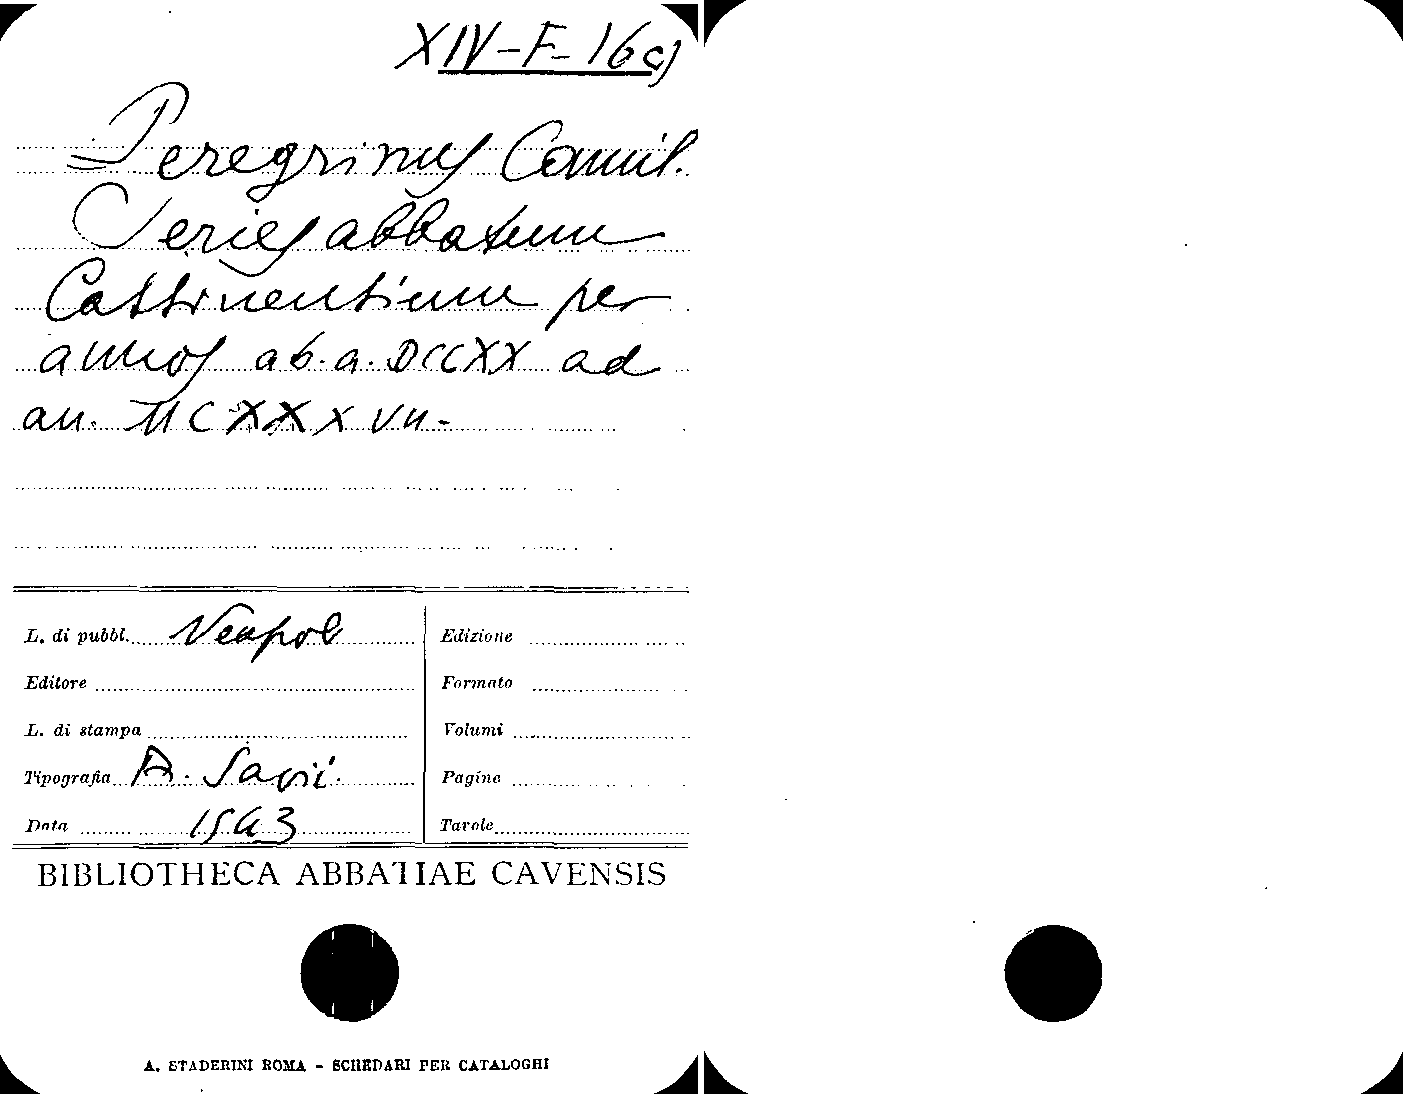 XIV-F-16c)
Peregrinus Camil.
Series abbatum
Cassinensium per
annos ab. a. DCCXX ad
an. MCXXXVII-
L. di pubbl. Neapol
Edizione
Editore
Formato
L. di stampa
Volumi
Tipografia A. Savii.
Pagine
Data 1643
Tavole
BIBLIOTHECA ABBATIAE CAVENSIS
A. STADERINI ROMA - SCHEDARI PER CATALOGHI